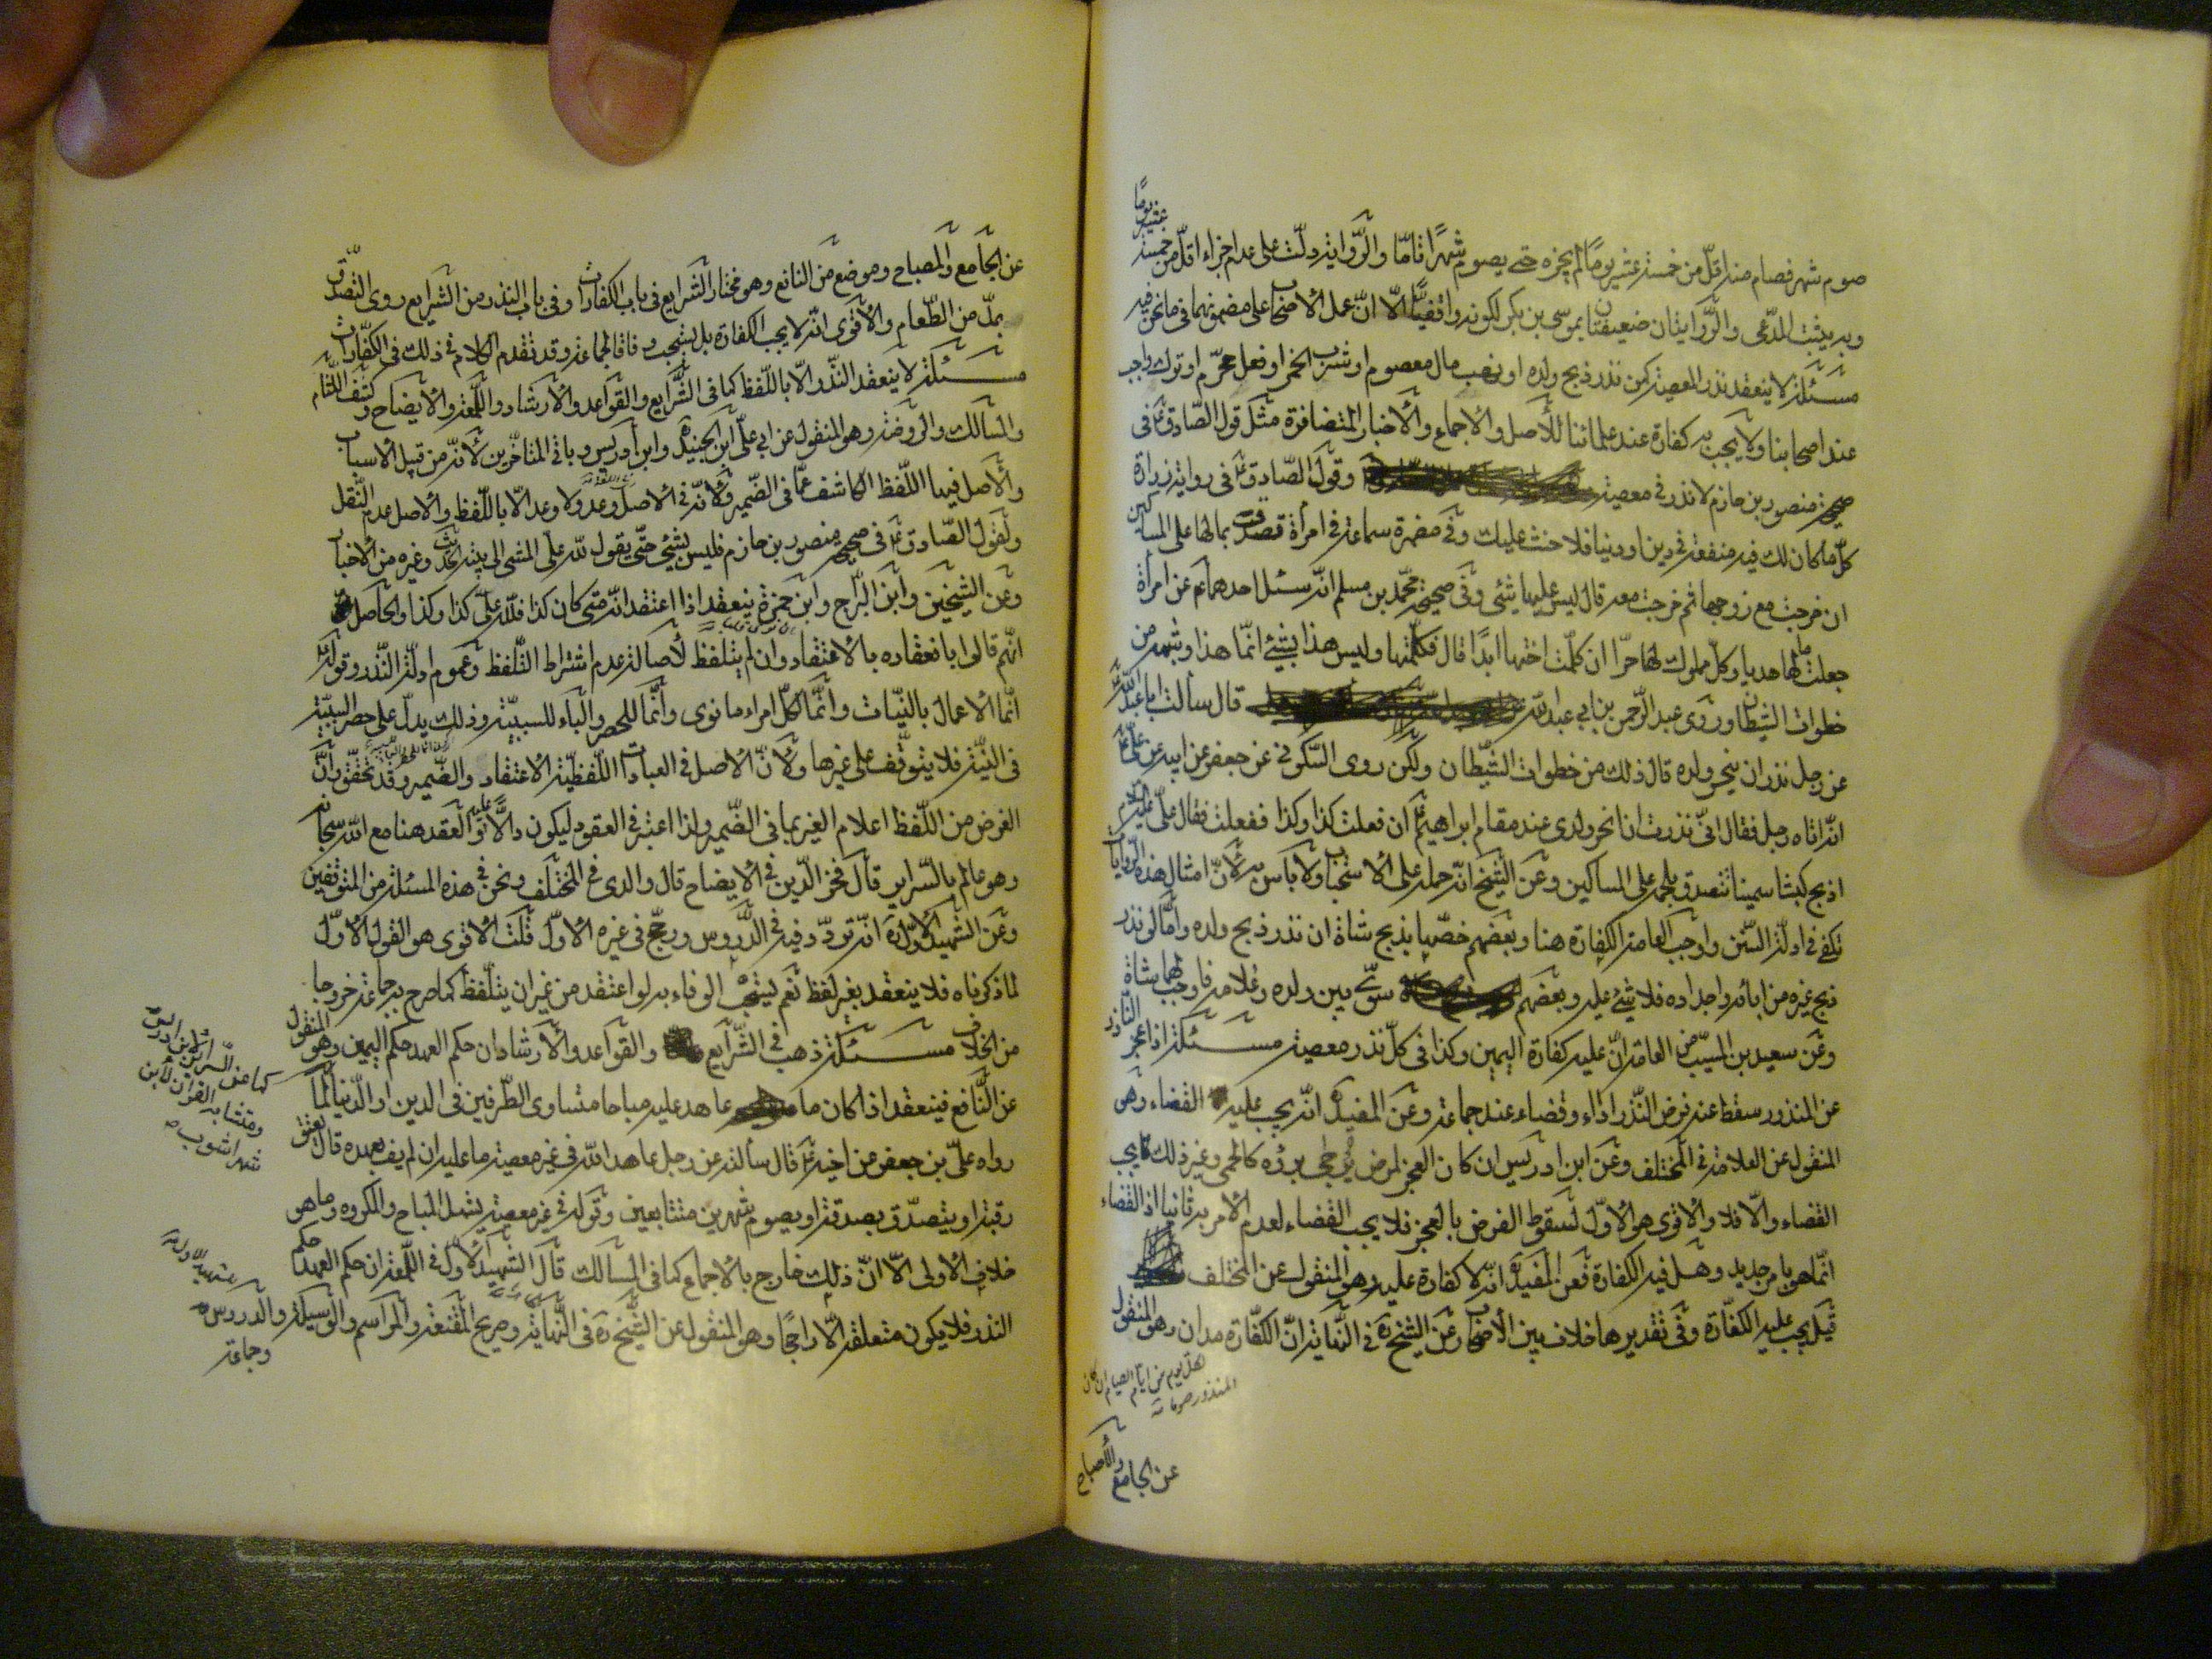 صوم شهر فصام منه اقلّ من خمسة عشر يومًا لم يجزه حتى يصوم شهرًا تامّا والرّواية دلّت على عدم اجزاء اقلّ من خمسة
عشر يومًا
وبه يثبت المدّعى والرّوايتان ضعيفتان بموسى بن بكر لكونه واقفيًّا الّا انّ عمل الأصحاب على مضمونهما في ما نحن فيه
مسئلة لا ينعقد نذر المعصية كمن نذر ذبح ولده او نهب مال معصوم او شرب الخمر او فعل محرّم او ترك واجب
عند اصحابنا ولا يجب به كفارة عند علمائنا للأصل والاجماع والأخبار المتضافرة مثل قول الصّادق ع في
صحيح منصور بن حازم لا نذر في معصية وقول الصّادق ع في رواية زرارة
كلّ ما كان لك فيه منفعة في دين او دنيا فلا حنث عليك وفي مضمرة سماعة في امرأة تصدّقت بمالها على المساكين
ان خرجت مع زوجها ثم خرجت معه قال ليس عليها شئ وفي صحيح محمّد بن مسلم انّه سئل احدهما ع عن امرأة
جعلت مالها هديا وكلّ مملوك لها حرّا ان كلّمت اختها ابدًا قال فكلّمتها وليس هذا بشئ انّما هذا وشبهه من
خطوات الشيطان وروى عبد الرّحمن بن ابي عبد الله قال سألت ابا عبد الله ع
عن رجل نذر ان ينحر ولده قال ذلك من خطوات الشّيطان ولكن روى السّكوني عن جعفر عن ابيه عن علي ع
انّه اتاه رجل فقال انّي نذرت ان انحر ولدي عند مقام ابراهيم ع ان فعلت كذا وكذا ففعلت فقال عليّ عليه السلام
اذبح كبشا سمينا تتصدق بلحمه على المساكين وعن الشّيخ انّه حمله على الاستحباب ولا بأس به لأنّ امثال هذه الرّوايات
تكفي في ادلّة السّنن واوجب العامة الكفارة هنا وبعضهم خصّها بذبح شاة ان نذر ذبح ولده وامّا لو نذر
ذبح غيره من ابائه واجداده فلا شئ عليه وبعضهم سوّى بين ولده وغلامه فاوجب لهما شاة
وعن سعيد بن المسيّب من العامة انّ عليه كفارة اليمين وكذا في كلّ نذر معصية مسئلة اذا عجز النّاذر
عن المنذور سقط عنه فرض النّذر اداء وقضاء عند جماعة وعن المفيد ره انّه يجب عليه القضاء وهو
المنقول عن العلامة في المختلف وعن ابن ادريس ان كان العجز لمرض يرجى برؤه كالحمى وغير ذلك يجب
القضاء والّا فلا والأقوى هو الاوّل لسقوط الفرض بالعجز فلا يجب القضاء لعدم الأمر به ثانيا اذ القضاء
انّما هو بامر جديد وهل فيه الكفارة فعن المفيد ره انّه لا كفارة عليه وهو المنقول عن المختلف
قيل يجب عليه الكفّارة وفي تقديرها خلاف بين الأصحاب وعن الشيخ ره في النّهاية انّ الكفّارة مدان وهو المنقول
لكلّ يوم من ايّام الصيام ان كان
المنذور صوما
عن الجامع والأصباح
عن الجامع والمصباح وموضع من النافع وهو مختار الشّرايع في باب الكفارات وفي باب النذر من الشّرايع روى التصدّق
بمدّ من الطّعام والأقوى انّه لا يجب الكفارة بل يستحب وفاقا لجماعة وقد تقدم الكلام في ذلك في الكفّارات
مسئلة لا ينعقد النّذر الّا باللّفظ كما في الشّرايع والقواعد والأرشاد واللّمعة والأيضاح وكشف اللّثام
والمسالك والروضة وهو المنقول عن ابي عليّ ابن الجنيد ره وابن ادريس وباقي المتأخّرين لأنّه من قبيل الاسباب
والأصل فيها اللّفظ الكاشف عمّا في الضّمير ولأنّه في الاصل وعد ولا وعد الّا باللّفظ والأصل عدم النّقل
ولقول الصّادق ع في صحيح منصور بن حازم فليس بشئ حتّى يقول لله علي المشي الى بيته الحديث وغيره من الأخبار
وعن الشيخين وابن البرّاج وابن حمزة ينعقد اذا اعتقد انّه متى كان كذا فلله عليّ كذا وكذا والحاصل
انّهم قالوا بانعقاده بالاعتقاد وان لم يتلفظ لأصالة عدم اشتراط التّلفظ وعموم ادلّة النّذر وقوله ع
انّما الاعمال بالنيّات وانّما لكلّ امرء ما نوى وانّما للحصر والباء للسببيّة وذلك يدلّ على حصر السببيّة
في النيّة فلا يتوقّف على غيرها ولأنّ الأصل في العبادات اللّفظيّة الاعتقاد والضّمير وقد تحقّق وانّ
الغرض من اللّفظ اعلام الغير بما في الضّمير ولذا اعتبر في العقود ليكون دالًّا عليه والعقد هنا مع الله سبحانه
وهو عالم بالسّراير قال فخر الدّين في الأيضاح قال والدي في المختلف ونحن في هذه المسئلة من المتوقّفين
وعن الشّهيد الاوّل ره انّه تردّد فيه في الدّروس ورجّح في غيره الاوّل قلت الاقوى هو القول الاوّل
لما ذكرناه فلا ينعقد بغير لفظ نعم يستحب الوفاء به لو اعتقد من غير ان يتلّفظ كما صرح به جماعة خروجا
من الخلاف مسئلة ذهب في الشّرايع والقواعد والأرشاد ان حكم العهد حكم اليمين وهو المنقول
كما عن السّرائر لابن ادريس
ومتشابه القران لأبن
شهر اشوب
عن النّافع فينعقد اذا كان ما عاهد عليه مباحا متساوى الطّرفين في الدين او الدّنيا لما
رواه عليّ بن جعفر عن اخيه ع قال سألته عن رجل عاهد الله في غير معصية ما عليه ان لم يف بعهده قال يعتق
رقبة او يتصدّق بصدقة او يصوم شهرين متتابعين وقوله في غير معصية يشمل المباح والمكروه وما هو
خلاف الاولى الّا انّ ذلك خارج بالأجماع كما في المسالك قال الشّهيد الأوّل في اللّمعة ان حكم العهد حكم
النذر فلا يكون متعلقه الّا راجحًا وهو المنقول عن الشّيخ ره في النّهاية وصريح المقنعة والمراسم والوسيلة والدروس
وجماعة